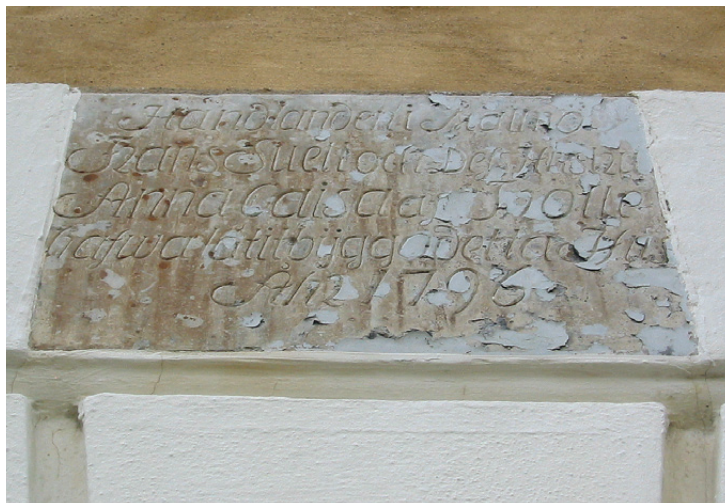 Handlanden i Malmö
Frans Suell och Des Hustru
Anna Caisa af Trolle
hafwa låtit bygga detta Hus
Åhr 1795